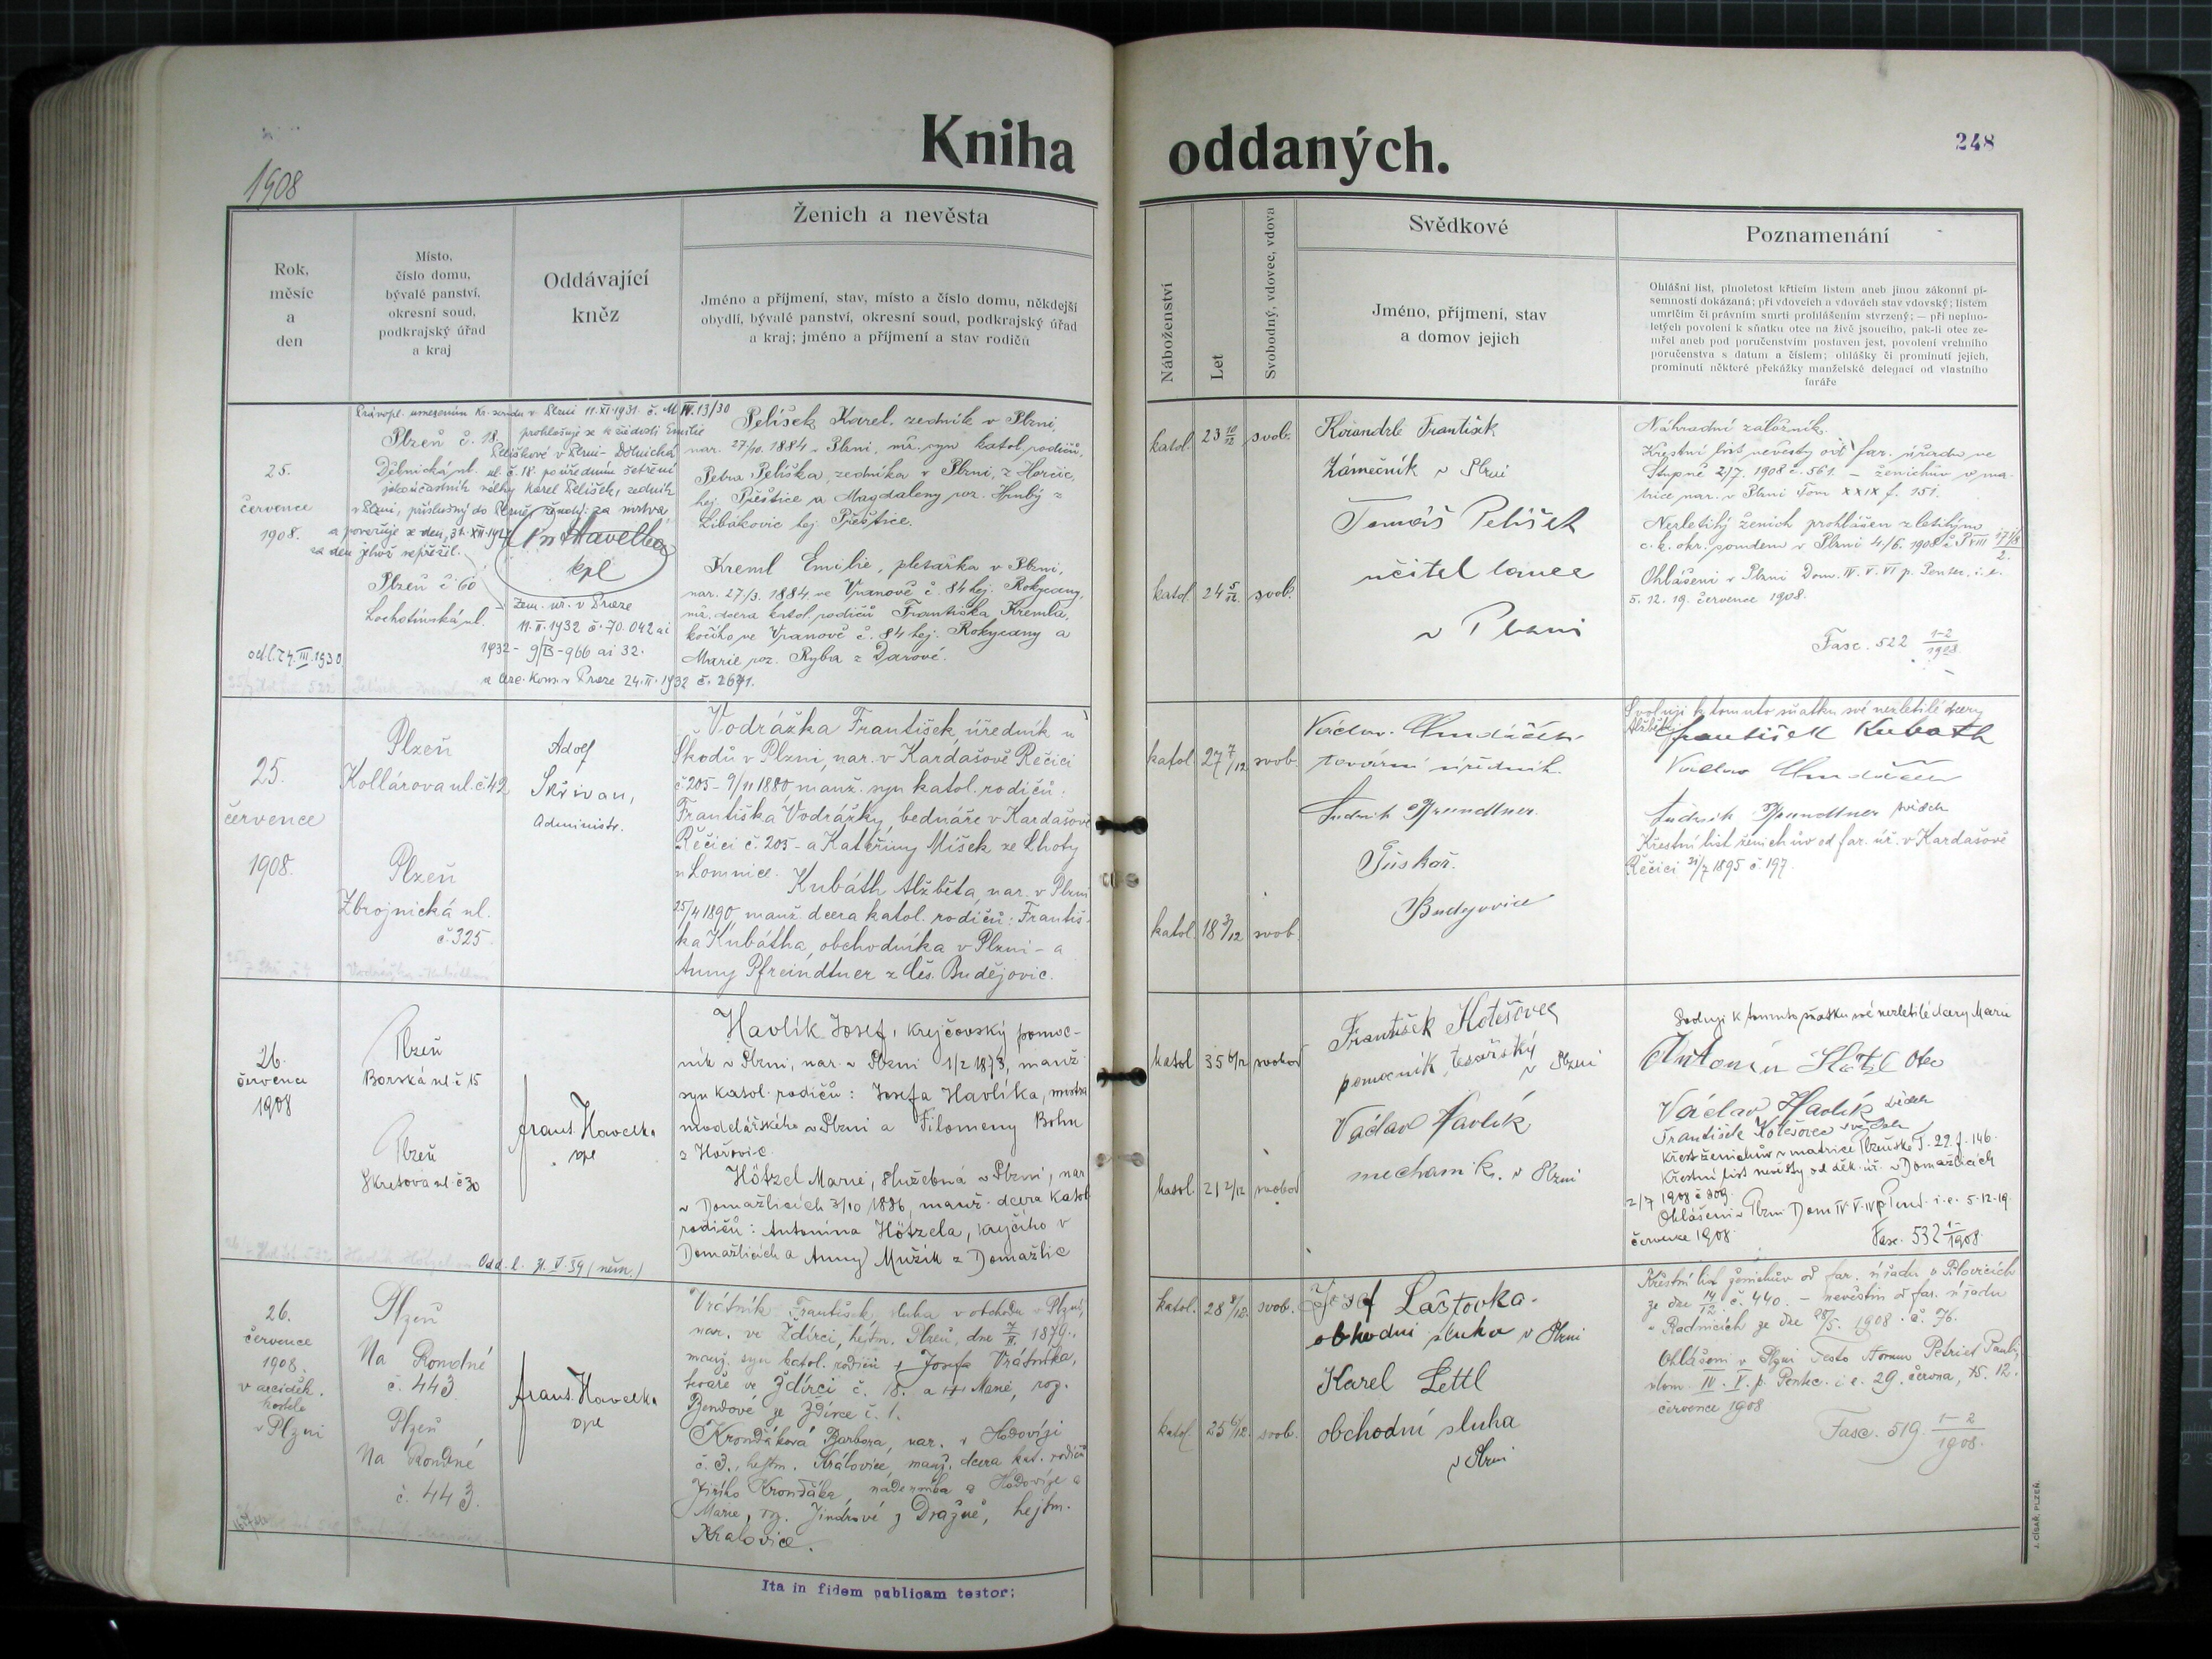 Kniha oddaných.
248
1908
Rok,
měsíc
a
den
Místo,
číslo domu,
bývalé panství,
okresní soud,
podkrajský úřad
a kraj
Oddávající
kněz
Ženich a nevěsta
Jméno a příjmení, stav, místo a číslo domu, někdejší
obydlí, bývalé panství, okresní soud, podkrajský úřad
a kraj; jméno a příjmení a stav rodičů
Náboženství
Let
Svobodný, vdovec, vdova
Svědkové
Jméno, příjmení, stav
a domov jejich
Poznamenání
Ohlášní list, plnoletost křticím listem aneb jinou zákonní pí-
semností dokázaná; při vdovcích a vdovách stav vdovský; listem
umrlčím či právním smrti prohlášením stvrzený; — při neplno-
letých povolení k sňatku otce na živě jsoucího, pak-li otec ze-
mřel aneb pod poručenstvím postaven jest, povolení vrchního
poručenstva s datum a číslem; ohlášky či prominutí jejich,
prominutí některé překážky manželské delegací od vlastního
faráře
25.
července
1908.
odl. 24. III. 1930
Právopl. usnesením Kr. soudu v Plzni 11. XI. 1931. č. M IV. 13/30
prohlašuje se k žádosti Emilie
Pelíškové v Plzni - Dělnická
ul. č. 18. po úředním šetření
Karel Pelíšek, zedník
v Plzni, příslušný do Plzně, za mrtva
a považuje se den, 31. XII. 19
za den jehož nepřežil.
Plzeň č. 18
Dělnická ul.
Plzeň č. 60
Lochotínská ul.
Fr. Havelka
kpl
Zem. úř. v Praze
11. II. 1932 č. 70.042 ai
1932 - 9/B - 966 ai 32.
v Praze 24. II. 1932 č. 2671.
Pelíšek Karel, zedník v Plzni,
nar. 27/10. 1884 v Plzni, mř. syn katol. rodičů,
Petra Pelíška, zedníka v Plzni, z Horčic,
hej. Přeštice a Magdaleny roz. Hrubý z
Libákovic hej. Přeštice.
Kreml Emilie, pletařka v Plzni,
nar. 27/3. 1884 ve Vranově č. 84 hej. Rokycany,
mř. dcera katol. rodičů Františka Kremla,
kočího ve Vranově č. 84 hej. Rokycany a
Marie roz. Ryba z Darové.
katol. 23 10/12 svob.
katol. 24 5/12 svob.
František
Zámečník v Plzni
Tomáš Pelíšek
učitel tance
v Plzni
Náhradní záložník.
Křestní list nevěsty od far. úřadu ve
Stupně 2/7. 1908 č. 561. - ženichův v ma-
trice nar. v Plzni Tom XXIX f. 151.
Nezletilý ženich prohlášen zletilým
c. k. okr. soudem v Plzni 4/6. 1908 č. P VIII
Ohlášeni v Plzni Dom. IV. V. VI p. Pentec. i. e.
5. 12. 19. července 1908.
Fasc. 522 1-2/1908
25.
července
1908.
Plzeň
Kollárova ul. č. 42
Plzeň
Zbrojnická ul.
č. 325.
Adolf
Skřivan,
Administr.
Vodrážka František, úředník u
Škodů v Plzni, nar. v Kardašově Řečici
č. 205 - 9/11 1880 manž. syn katol. rodičů:
Františka Vodrážky, bednáře v Kardašově
Řečici č. 205 - a Kateřiny Míšek ze Lhoty
u Lomnice.
Kubáth Alžběta, nar. v Plzni
25/4 1890, manž. dcera katol. rodičů: Františ-
ka Kubátha, obchodníka v Plzni - a
Anny Pfreindtner z Čes. Budějovic.
katol. 27 7/12 svob.
katol. 18 3/12 svob.
Václav
tovární úředník.
Ludvík Pfreindtner.
Puškař.
Budějovice
Svoluji k tomuto sňatku své nezletilé dcery
Alžběty
František Kubath
Václav
Ludvík Pfreindtner svědek
Křestní list ženichův od far. úř. v Kardašově
Řečici 31/7 1895 č. 197.
26.
července
1908
Plzeň
Borská ul. č. 15
Plzeň
Skretova ul. č. 30
Frant. Havelka
kpl
Odd. l. 31. V. 39 (něm.)
Havlík Josef, krejčovský pomoc-
ník v Plzni, nar. v Plzni 1/2 1873, manž.
syn katol. rodičů: Josefa Havlíka, mistra
modelářského v Plzni a Filomeny Bohn
z Hořovic.
Hötzel Marie, služebná v Plzni, nar
v Domažlicích 3/10 1886, manž. dcera katol
rodičů: Antonína Hötzela, krejčího v
Domažlicích a Anny Mužík z Domažlic
katol 35 6/12 svobod
katol. 21 2/12 svobod
František Kotěšovec
pomocník tesařský
v Plzni
Václav Havlík
mechanik. v Plzni
Svoluji k tomuto sňatku své nezletilé dcery Marie
Antonín Hötzl Otec
Václav Havlík svědek
František Kotěšovec svědek
Křest ženichův v matrice Plzeňské T. 22. f. 146.
Křestní list nevěsty od děk. úř. v Domažlicích
2/7 1908
Ohlášeni v Plzni Dom IV. V. VI p Pent. i. e. 5. 12. 19.
července 1908.
Fasc. 532 1-/1908
26.
července
1908.
v arciděk.
kostele
v Plzni
Plzeň
Na Rondné
č. 443
Plzeň
Na Rondné
č. 443.
Frant. Havelka
kpl
Vrátník František, sluha v obchodu v Plzni,
nar. ve Ždírci, hejtm. Plzeň, dne 7/II. 1879.,
manž. syn katol. rodičů † Josefa Vrátníka,
tesaře ve Ždírci č. 18. a Marie, roz.
Bendové ze Ždírce č. 1.
Krondáková Barbora, nar. v Hodovízi
č. 3., hejtm. Kralovice, manž. dcera kat. rodičů
Jiřího Krondáka, nádeníka z Hodovíze a
Marie, roz. Jindrové z Dražně, hejtm.
Kralovice.
katol. 28 8/12. svob.
katol. 25 6/12. svob.
Josef Laštovka.
obchodní sluha v Plzni
Karel Lettl
obchodní sluha
v Plzni
Křestní list ženichův od far. úřadu v
ze dne 14/12. č. 440. - nevěstin od far. úřadu
v Radnicích ze dne 28/5. 1908. č. 76.
Ohlášeni v Plzni Festo Petri et Pauli,
dom. IV. V. p. Pentec. i. e. 29. června, 5. 12.
července 1908
Fasc. 519. 1-2/1908.
Ita in fidem publicam testor:
J. CÍSAŘ, PLZEŇ.